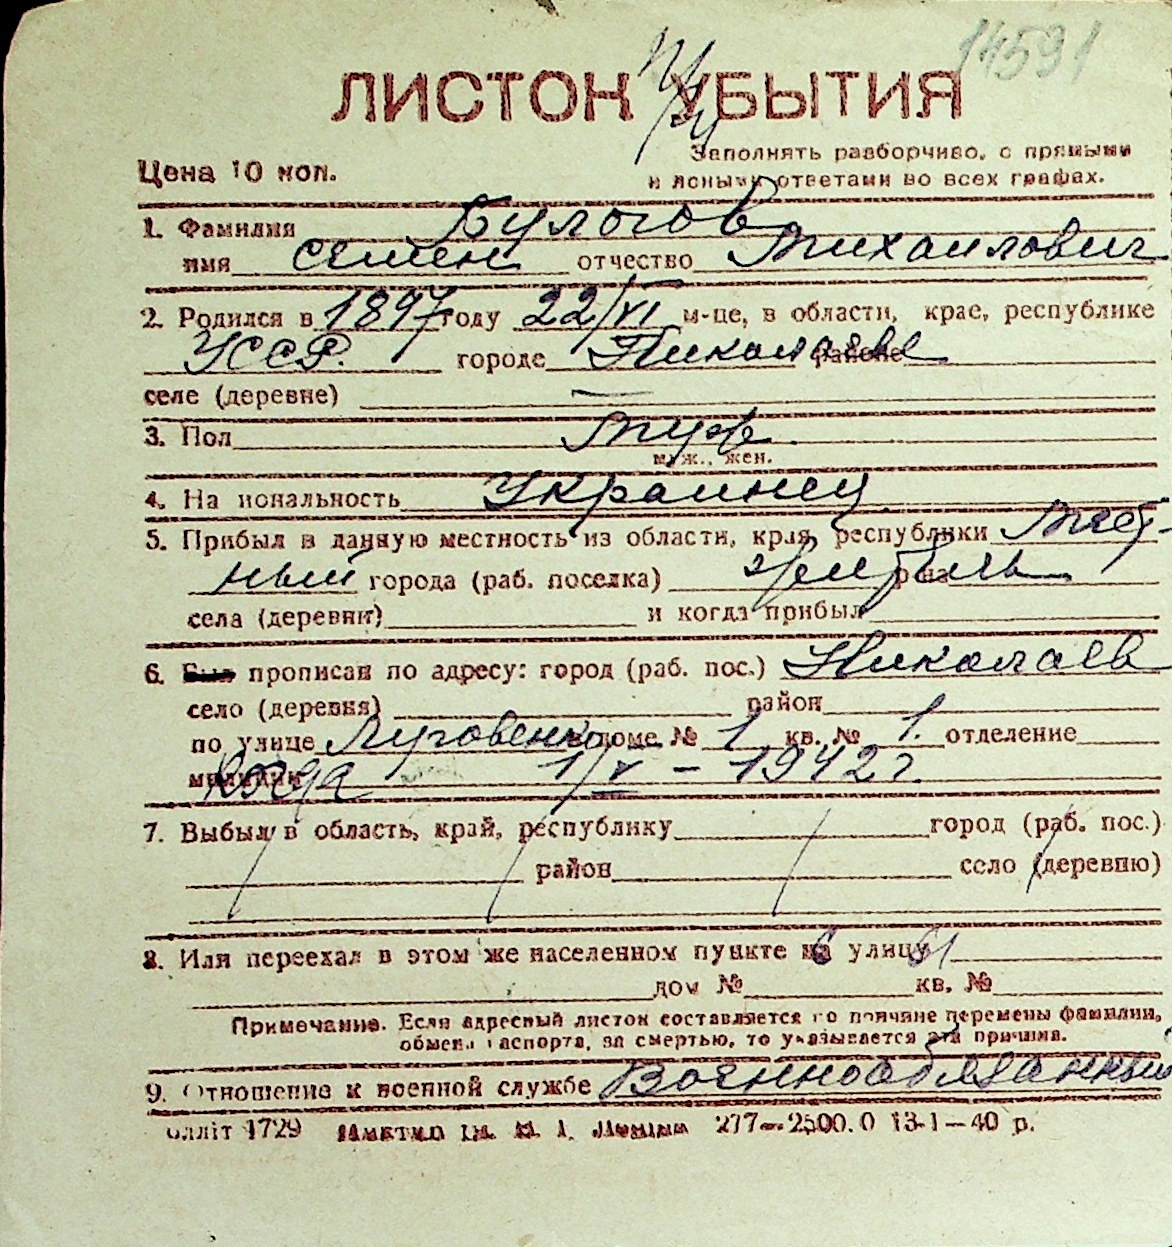 14591
ЛИСТОК УБЫТИЯ
Цена 10 коп.
Заполнять разборчиво, с прямыми
и ясными ответами во всех графах.
1. Фамилия Булогов
имя Семен отчество Михаилович
2. Родился в 1897 году 22/VI м-це, в области, крае, республике
УССР. городе Николаеве районе
селе (деревне) —
3. Пол муж.
муж., жен.
4. На иональность Украинец
5. Прибыл в данную местность из области, края, республики Мест-
ный города (раб. поселка) житель р-на
села (деревни) и когда прибыл
6. Был прописан по адресу: город (раб. пос.) Николаев
село (деревня) район
по улице в доме № 1 кв. № 1. отделение
милиции когда 1/V - 1942 г.
7. Выбыл в область, край, республику город (раб. пос.)
район село (деревню)
8. Или переехал в этом же населенном пункте на улицу
дом № кв. №
Примечание. Если адресный листок составляется по причине перемены фамилии,
обмена паспорта, за смертью, то указывается эта причина.
9. Отношение к военной службе Военнообязанный
олліт 1729 277—2500.0 13-1—40 р.